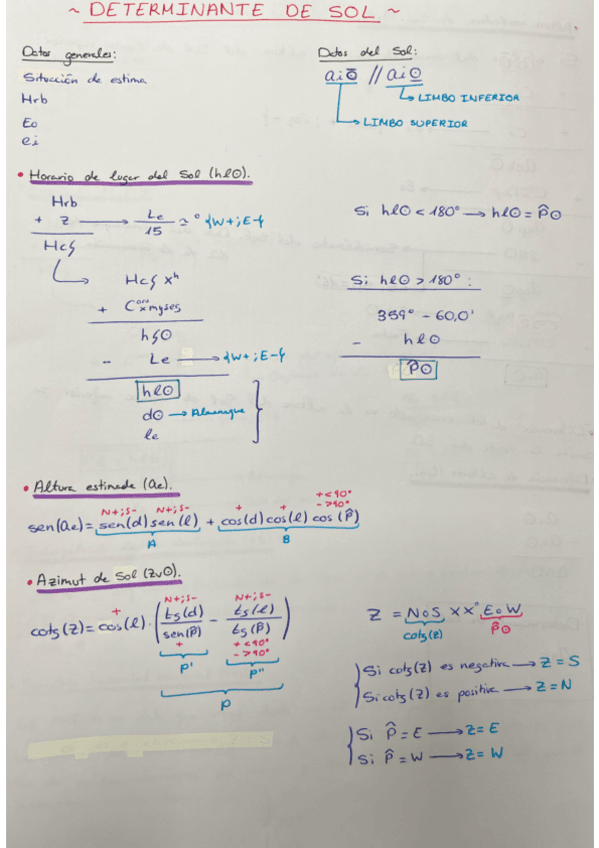 ~ DETERMINANTE DE SOL ~
Datos generales:
Situación de estima
Hrb
Eo
ei
Datos del Sol:
ai☉ // ai☉
LIMBO INFERIOR
LIMBO SUPERIOR
• Horario de lugar del Sol (hl☉).
Hrb
+ Z → Le/15 ≈ ° {W+; E-}
HcG
HcG x^h
+ C^oro x myses
hG☉
- Le → {W+; E-}
hl☉
d☉ → Almanaque
le
Si hl☉ < 180° → hl☉ = P̂☉
Si hl☉ > 180°:
359° - 60,0'
- hl☉
P̂☉
• Altura estimada (ae).
N+; S- N+; S- + + +<90° ->90°
sen(ae) = sen(d) sen(l) + cos(d) cos(l) cos(P̂)
A B
• Azimut de Sol (Zv☉).
+ N+; S- N+; S-
cotg(Z) = cos(l) · (tg(d)/sen(P̂) - tg(l)/tg(P̂))
+ +<90° ->90°
P' P"
P
Z = NoS XX° EoW
cotg(Z) P̂☉
Si cotg(Z) es negativa → Z = S
Si cotg(Z) es positiva → Z = N
Si P̂ = E → Z = E
Si P̂ = W → Z = W